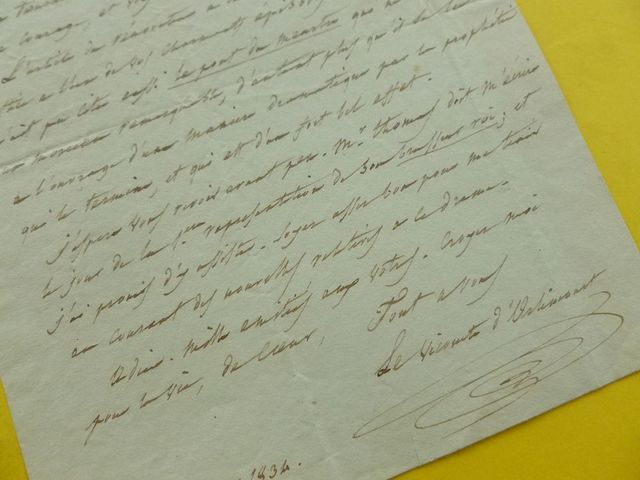 courage, et
L'article du rénovateur a
bien de vos charmants épisodes
pas cités aussi le pont du meurtre que
un morceau remarquable, d'autant plus qu'il
a l'ouvrage d'une manière dramatique par la prophétie
qui le termine, et qui est d'un fort bel effet.
J'espère vous revoir avant peu. Mr. thomas doit m'écrire
le jour de la 1ere représentation de son brasseur roi; et
j'ai promis d'y assister. Soyez assez bon pour me tenir
au courant des nouvelles relatives à ce drame.
Adieu. Mille amitiés aux vôtres. Croyez moi
pour la vie, de coeur,
Tout a vous
Le Vicomte d'Arlincourt
1834.